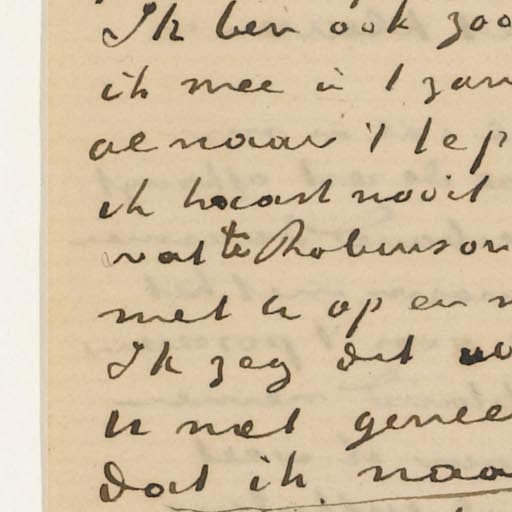 Ik ben ook zoo
ik mee in 't zan
al naar 't lep
ik haast nooit
wat te Robinson
met u op en n
Ik zeg dit
u met genee
dat ik naa